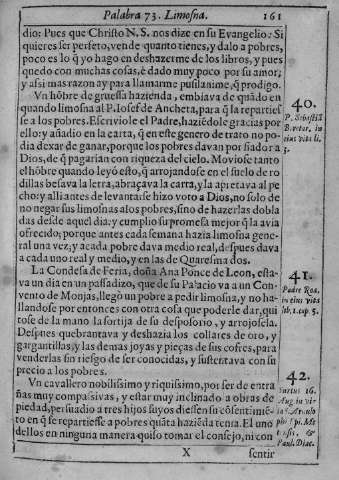 Palabra 73. Limosna. 161
dio: Pues que Christo N. S. nos dize en su Evangelio: Si
quieres ser perfeto, vende quanto tienes, y dalo a pobres,
poco es lo q̃ yo hago en deshazerme de los libros, y pues
quedo con muchas cosas, è dado muy poco por su amor;
y assi mas razon ay para llamarme pusilanime, q̃ prodigo.
Vn hõbre de gruessa hazienda, embiava de quãdo en
quando limosna al P. Iosef de Ancheta, para q̃ la repartiesse
a los pobres. Escriviole el Padre, haziẽdole gracias por
ello: y añadio en la carta, q̃ en este genero de trato no podia
dexar de ganar, porque los pobres davan por fiador a
Dios, de q̃ pagarian con riqueza del cielo. Moviose tanto
el hõbre quando leyó esto, q̃ arrojandose en el suelo de rodillas
besava la letra, abraçava la carta, y la apretava al pecho:
y alli antes de levantarse hizo voto a Dios, no solo de
no negar sus limosnas a los pobres, sino de hazerlas dobladas
desde aquel dia: y cumplio su promesa mejor q̃ la avia
ofrecido; porque antes cada semana hazia limosna general
una vez, y a cada pobre dava medio real, despues dava
a cada uno real y medio, y en las de Quaresma dos.
La Condesa de Feria, doña Ana Ponce de Leon, estava
un dia en un passadizo, que de su Palacio va a un Convento
de Monjas, llegò un pobre a pedir limosna, y no hallandose
por entonces con otra cosa que poderle dar, quitose
de la mano la sortija de su desposorio, y arrojosela.
Despues quebrantava y deshazia los collares de oro, y
gargantillas, y las demas joyas y pieças de sus cofres, para
venderlas sin riesgo de ser conocidas, y sustentava con su
precio a los pobres.
Vn cavallero nobilissimo y riquissimo, por ser de entrañas
muy compassivas, y estar muy inclinado a obras de
piedad, persuadio a tres hijos suyos diessen su cõsentimiẽto
en q̃ se repartiesse a pobres quãta haziẽda tenia. El uno
dellos en ninguna manera quiso tomar el consejo, ni con
X sentir
40.
P. Sebastiã
in
eius vita li.
3.
41.
Padre Roa,
in eius vita
lib. 1. cap. 5.
42.
Surius 16.
Aug. in vita
S. Arnulphi
&
Paul. Diac.